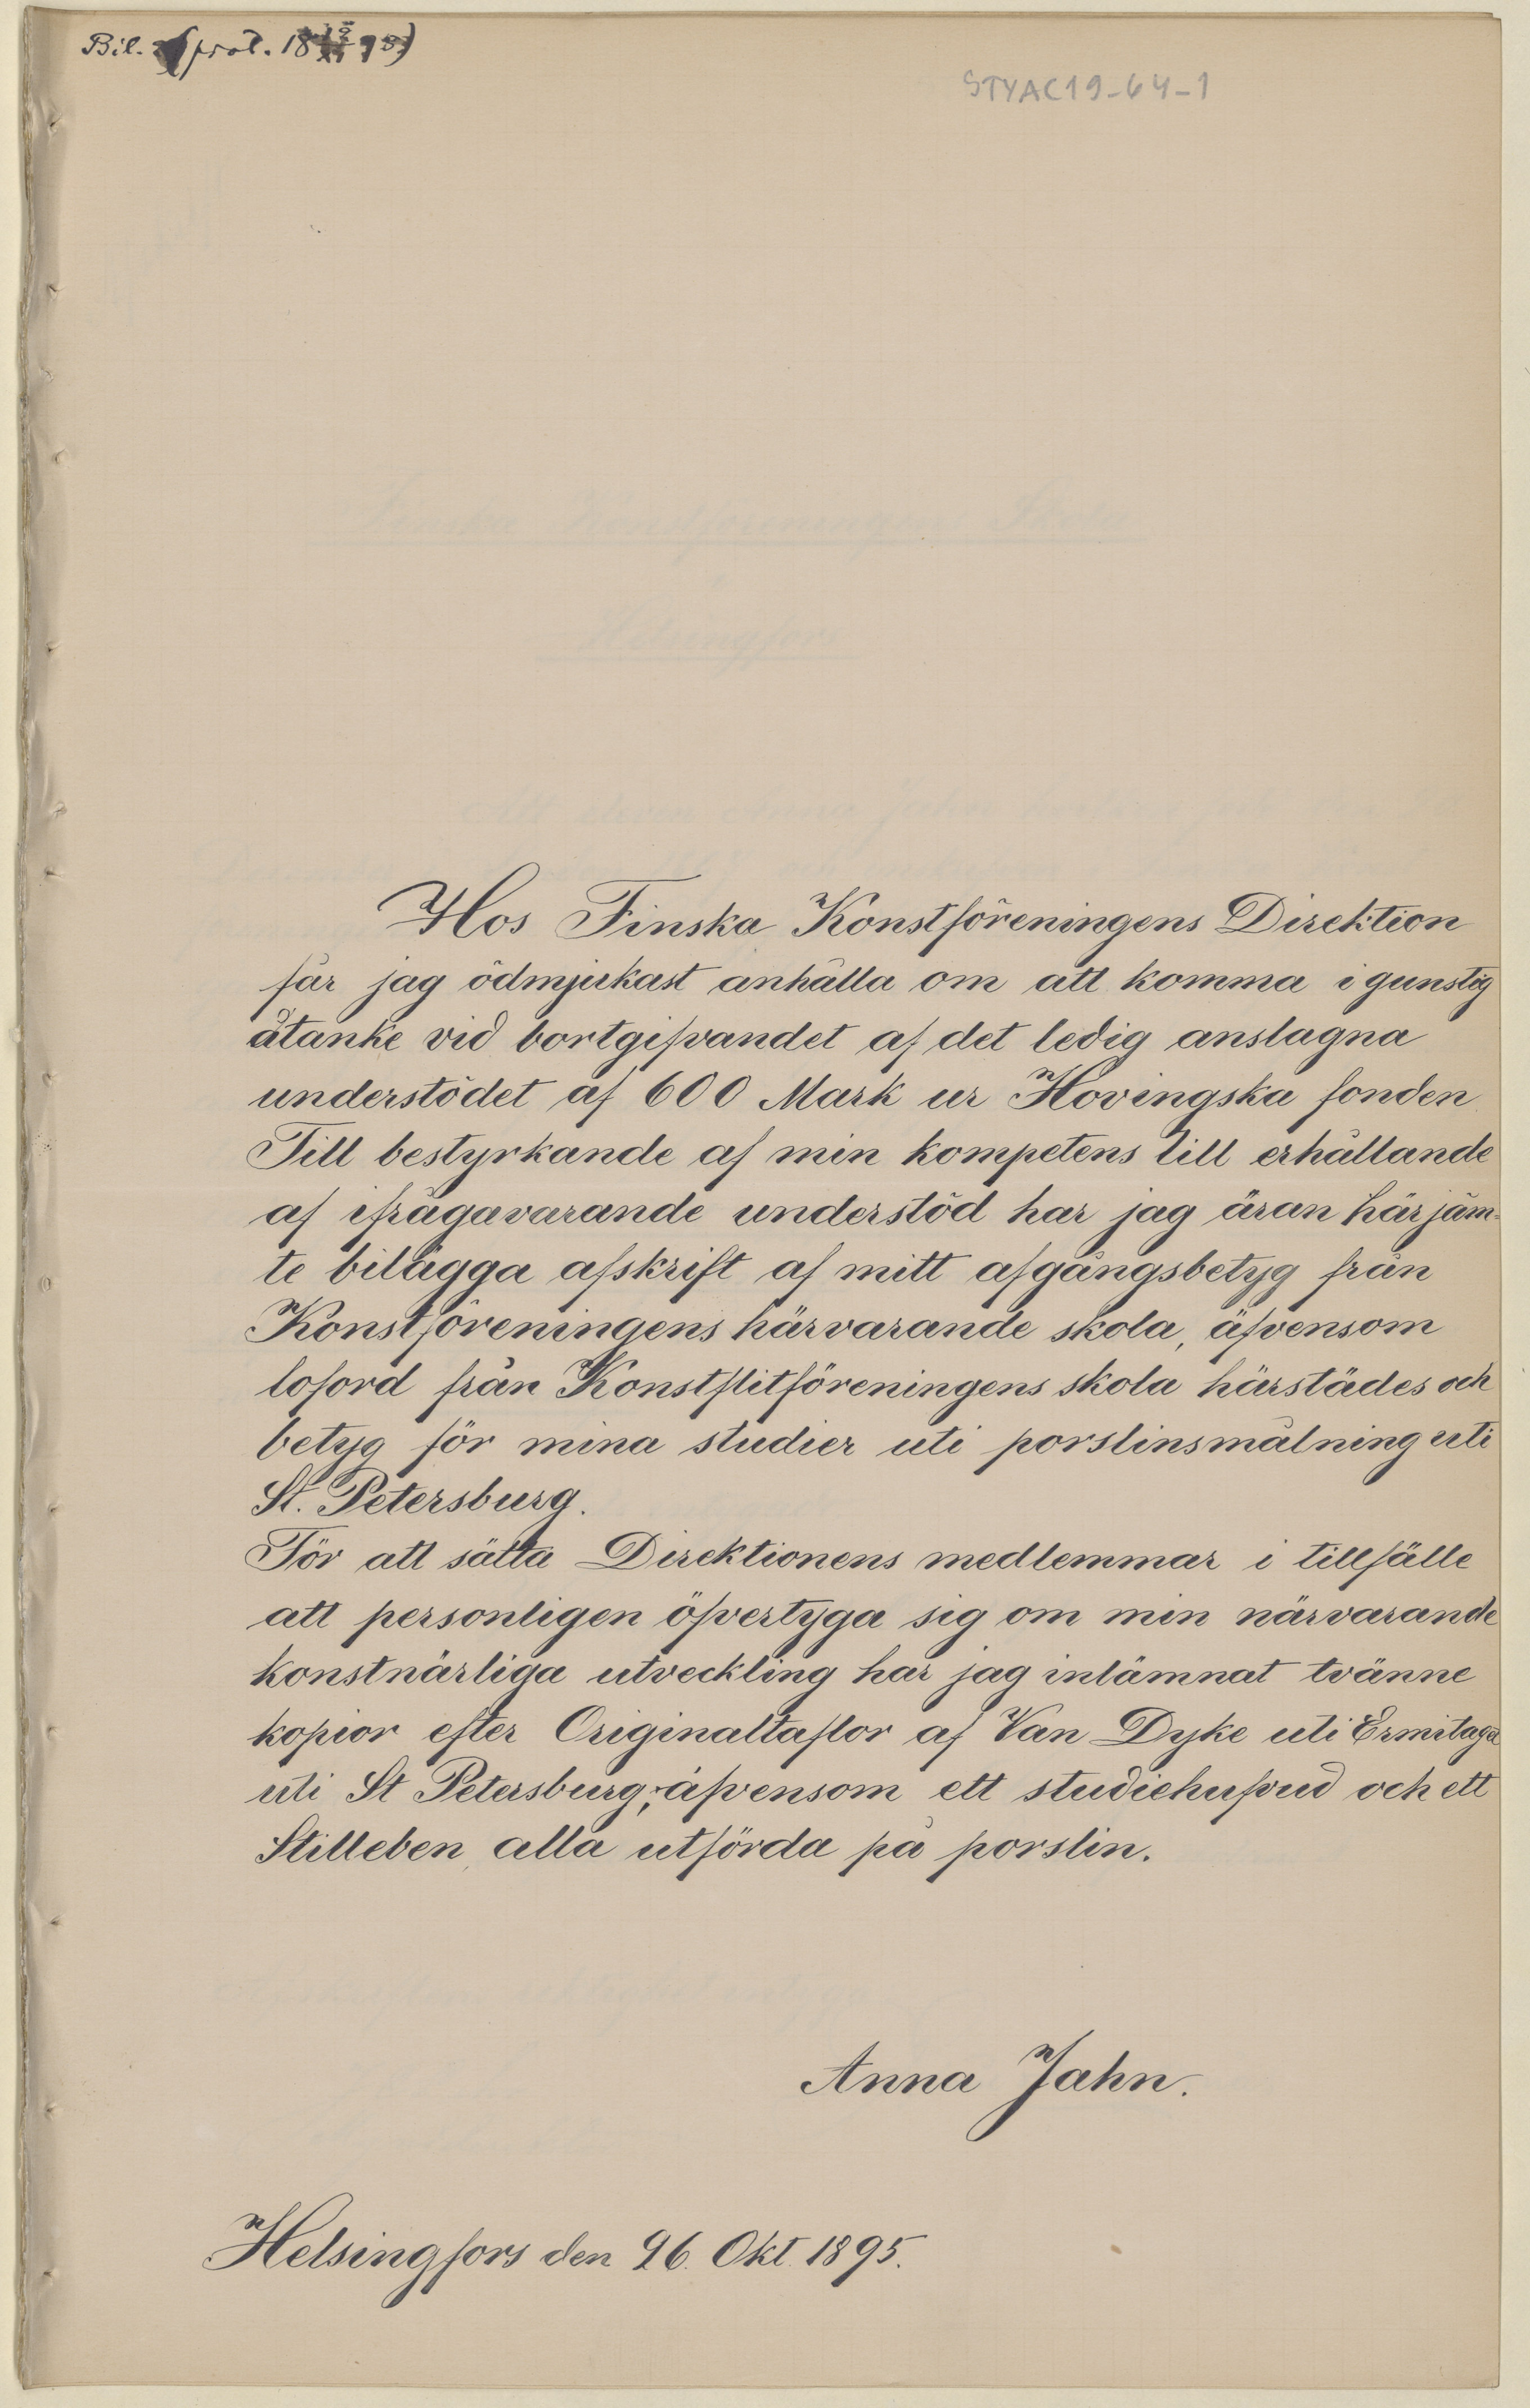 Bil. (prot. 18 95)
STYAC19-64-1
Hos Finska Konstföreningens Direktion
får jag ödmjukast anhålla om att komma i gunstig
åtanke vid bortgifvandet af det ledig anslagna
understödet af 600 Mark ur Hovingska fonden
Till bestyrkande af min kompetens till erhållande
af ifrågavarande understöd har jag äran härjäm-
te bilägga afskrift af mitt afgångsbetyg från
Konstföreningens härvarande skola, äfvensom
loford från Konstflitföreningens skola härstädes och
betyg för mina studier uti porslinsmålning uti
St. Petersburg.
För att sätta Direktionens medlemmar i tillfälle
att personligen öfvertyga sig om min närvarande
konstnärliga utveckling har jag inlämnat tvänne
kopior efter Originaltaflor af Van Dyke uti Ermitage
uti St Petersburg; äfvensom ett studiehufvud och ett
Stilleben, alla utförda på porslin.
Anna Jahn.
Helsingfors den 26. Okt. 1895.